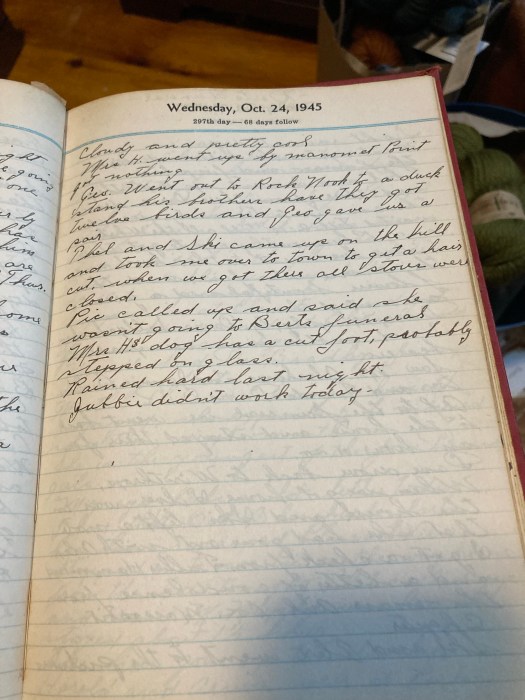 Wednesday, Oct. 24, 1945
297th day — 68 days follow
Cloudy and pretty cool
Mrs H. went up by manomet Point
got nothing
Geo. Went out to Rock Nook to a duck
stand his brother have they got
twelve birds and Geo gave us a
pair
Phel and Ski came up on the hill
and took me over to town to get a hair
cut, when we got there all stores were
closed.
Pic called up and said she
wasn't going to Berts funeral
Mrs Hs dog has a cut foot, probably
stepped on glass.
Rained hard last night.
Jubbie didn't work today.
ght
going
one
him
are
thus.
ome
the
a